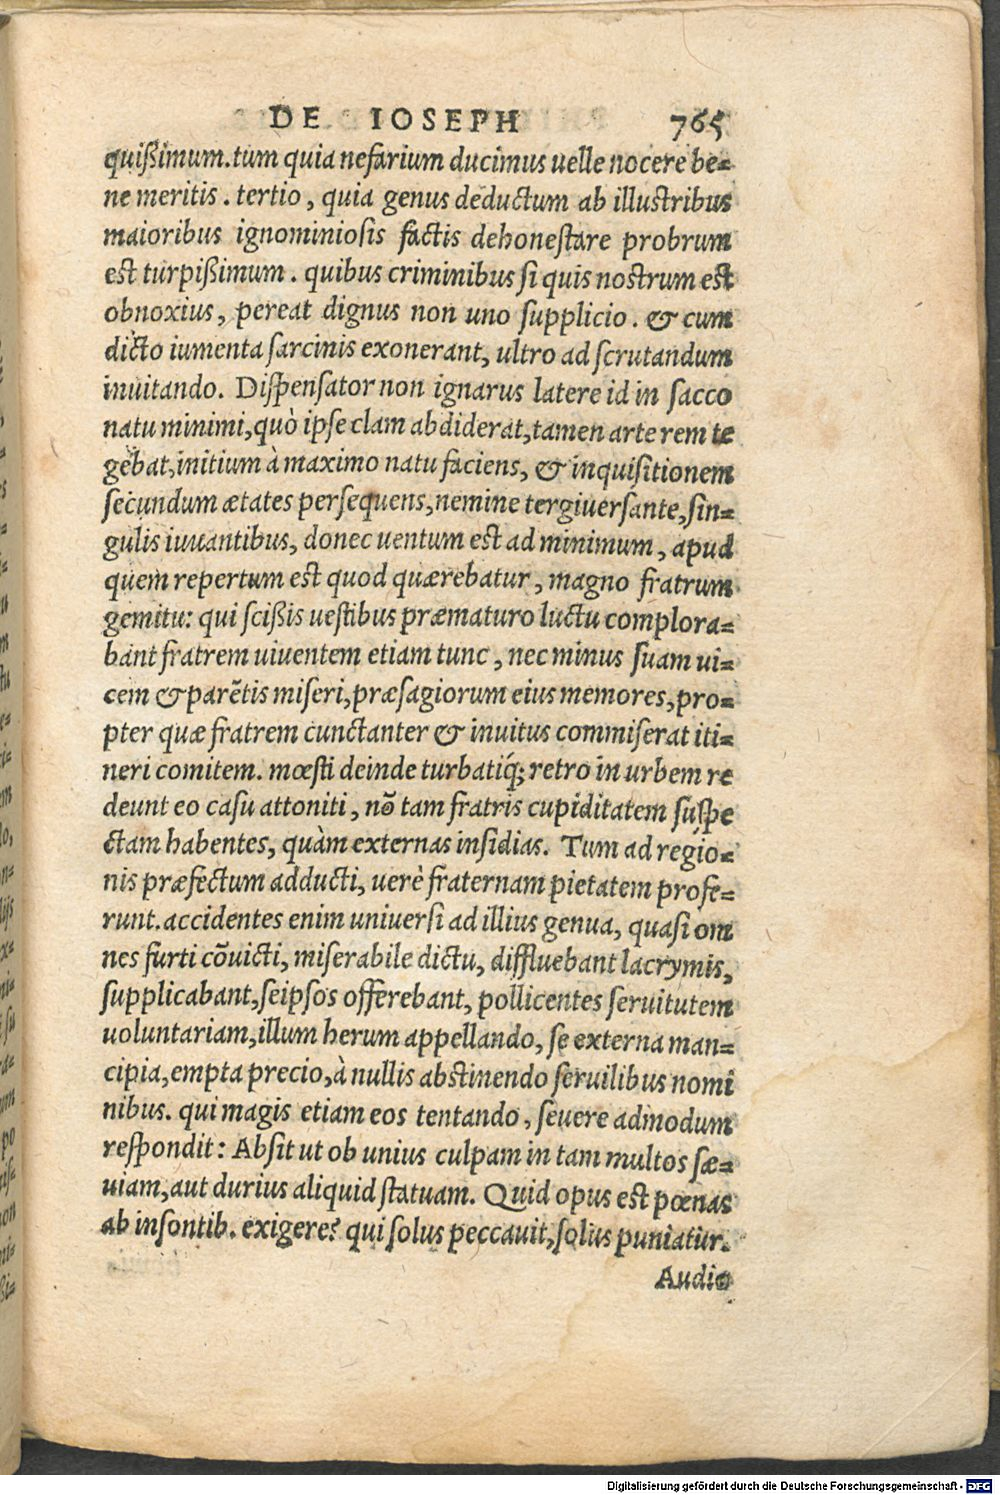 DE IOSEPH 765
quißimum. tum quia nefarium ducimus uelle nocere be=
ne meritis. tertio, quia genus deductum ab illustribus
maioribus ignominiosis factis dehonestare probrum
est turpißimum. quibus criminibus si quis nostrum est
obnoxius, pereat dignus non uno supplicio. & cum
dicto iumenta sarcinis exonerant, ultro ad scrutandum
inuitando. Dispensator non ignarus latere id in sacco
natu minimi, quò ipse clam abdiderat, tamen arte rem te
gebat, initium à maximo natu faciens, & inquisitionem
secundum ætates persequens, nemine tergiuersante, sin=
gulis iuuantibus, donec uentum est ad minimum, apud
quem repertum est quod quærebatur, magno fratrum
gemitu: qui scißis uestibus præmaturo luctu complora=
bant fratrem uiuentem etiam tunc, nec minus suam ui=
cem & parẽtis miseri, præsagiorum eius memores, pro=
pter quæ fratrem cunctanter & inuitus commiserat iti=
neri comitem. mœsti deinde turbatiq́; retro in urbem re
deunt eo casu attoniti, nõ tam fratris cupiditatem suspe
ctam habentes, quàm externas insidias. Tum ad regio=
nis præfectum adducti, uerè fraternam pietatem profe=
runt. accidentes enim uniuersi ad illius genua, quasi om
nes furti cõuicti, miserabile dictu, diffluebant lacrymis,
supplicabant, seipsos offerebant, pollicentes seruitutem
uoluntariam, illum herum appellando, se externa man=
cipia, empta precio, à nullis abstinendo seruilibus nomi
nibus. qui magis etiam eos tentando, seuere admodum
respondit: Absit ut ob unius culpam in tam multos sæ=
uiam, aut durius aliquid statuam. Quid opus est pœnas
ab insontib. exigere? qui solus peccauit, solus puniatur.
Audio
Digitalisierung gefördert durch die Deutsche Forschungsgemeinschaft - DFG